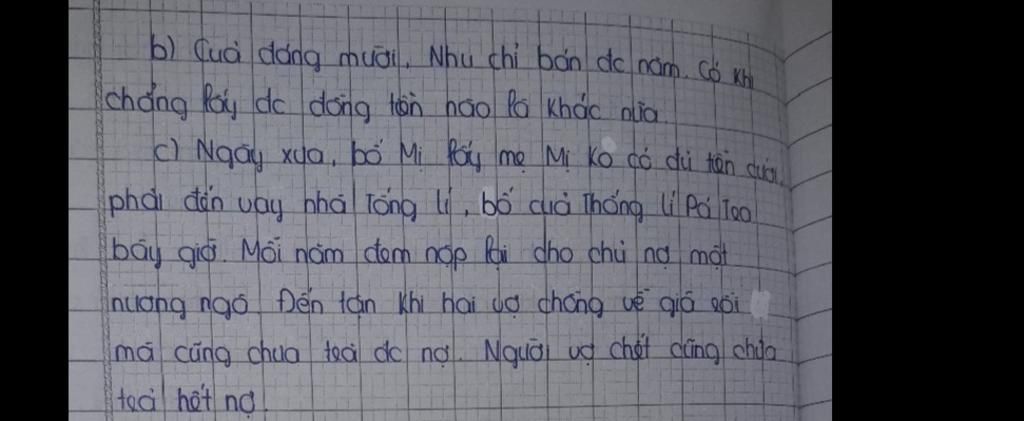 b) Của đáng mười, Nhu chỉ bán đc năm. Có khi
chẳng lấy đc đồng tiền nào là khác nữa.
c) Ngày xưa, bố Mị lấy mẹ Mị ko có đủ tiền cưới
phải đến vay nhà Tống lí, bố của Thống lí Pá Tra
bây giờ. Mỗi năm đem nộp lãi cho chủ nợ một
nương ngô. Đến tận khi hai vợ chồng về già rồi
mà cũng chưa trả đc nợ. Người vợ chết cũng chưa
trả hết nợ.